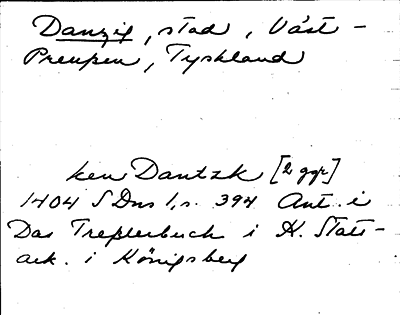 Danzig, stad, Väst-
Preussen, Tyskland
ken Dantzk [2 ggr]
1404 SDns 1, s. 394 Ant. i
Das Tresslerbuch i K. Stats-
ark. i Königsberg